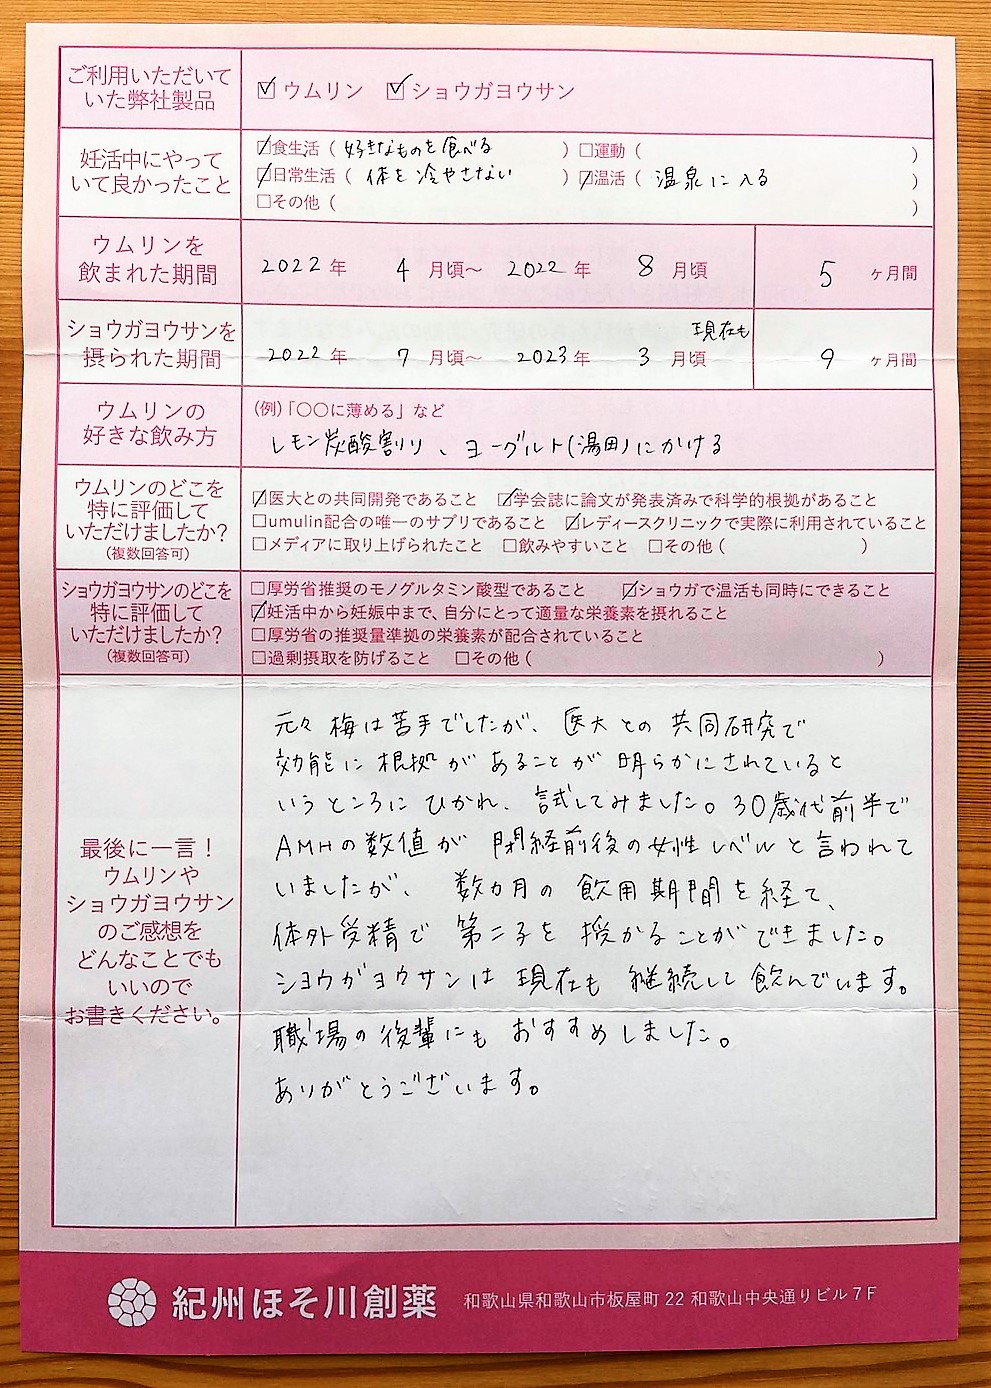 ご利用いただいて
いた弊社製品
☑ウムリン ☑ショウガヨウサン
妊活中にやって
いて良かったこと
☑食生活（好きなものを食べる） □運動（ ）
☑日常生活（体を冷やさない） ☑温活（温泉に入る）
□その他（ ）
ウムリンを
飲まれた期間
2022年 4月頃〜2022年 8月頃 5ヶ月間
ショウガヨウサンを
摂られた期間
現在も
2022年 7月頃〜2023年 3月頃 9ヶ月間
ウムリンの
好きな飲み方
(例)「〇〇に薄める」など
レモン炭酸割り、ヨーグルト(湯田)にかける
ウムリンのどこを
特に評価して
いただけましたか?
(複数回答可)
☑医大との共同開発であること ☑学会誌に論文が発表済みで科学的根拠があること
□umulin配合の唯一のサプリであること ☑レディースクリニックで実際に利用されていること
□メディアに取り上げられたこと □飲みやすいこと □その他（ ）
ショウガヨウサンのどこを
特に評価して
いただけましたか?
(複数回答可)
□厚労省推奨のモノグルタミン酸型であること ☑ショウガで温活も同時にできること
☑妊活中から妊娠中まで、自分にとって適量な栄養素を摂れること
□厚労省の推奨量準拠の栄養素が配合されていること
□過剰摂取を防げること □その他（ ）
最後に一言！
ウムリンや
ショウガヨウサン
のご感想を
どんなことでも
いいので
お書きください。
元々梅は苦手でしたが、医大との共同研究で
効能に根拠があることが明らかにされていると
いうところにひかれ、試してみました。30歳代前半で
AMHの数値が閉経前後の女性レベルと言われて
いましたが、数カ月の飲用期間を経て、
体外受精で第二子を授かることができました。
ショウガヨウサンは現在も継続して飲んでいます。
職場の後輩にもおすすめしました。
ありがとうございます。
紀州ほそ川創薬 和歌山県和歌山市板屋町22和歌山中央通りビル7F